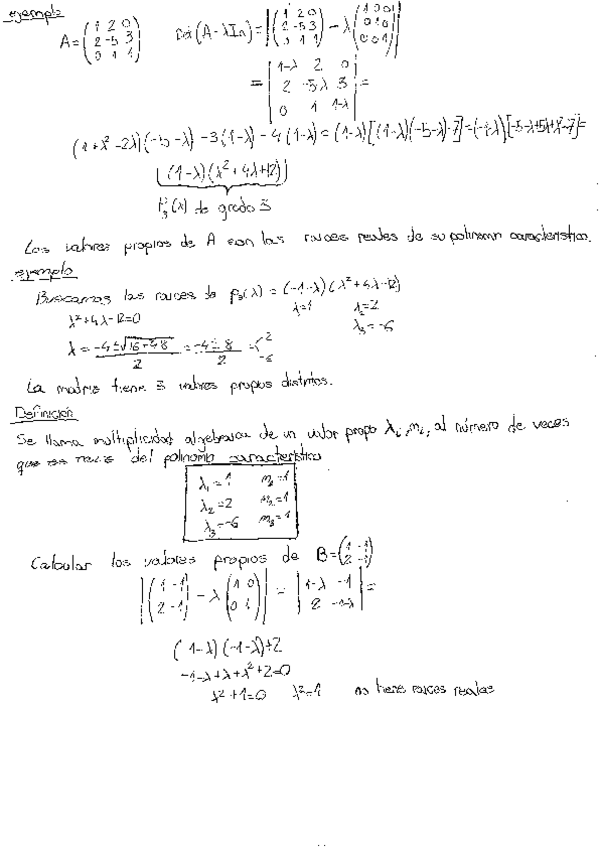 ejemplo
A = (1 2 0; 2 -5 3; 0 1 1) Det(A - λIn) = |(1 2 0; 2 -5 3; 0 1 1) - λ(1 0 0; 0 1 0; 0 0 1)|
= |1-λ 2 0; 2 -5-λ 3; 0 1 1-λ| =
(1+λ²-2λ)(-5-λ)-3(1-λ)-4(1-λ) = (1-λ)[(1-λ)(-5-λ)-7] = (1-λ)[-5-λ+5λ+λ²-7] =
(1-λ)(λ²+4λ-12)
P₃(λ) de grado 3
Los valores propios de A son las raíces reales de su polinomio característico.
ejemplo
Buscamos las raíces de p₃(λ) = (-1-λ)(λ²+4λ-12)
λ=1 λ₂=2
λ²+4λ-12=0 λ₃=-6
λ = -4±√16+48 / 2 = -4±8 / 2 = < 2 -6
La matriz tiene 3 valores propios distintos.
Definición
Se llama multiplicidad algebraica de un valor propio λi, mi, al número de veces
que es raíz del polinomio característico
λ₁=1 m₁=1
λ₂=2 m₂=1
λ₃=-6 m₃=1
Calcular los valores propios de B = (1 -1; 2 -1)
|(1 -1; 2 -1) - λ(1 0; 0 1)| = |1-λ -1; 2 -1-λ| =
(1-λ)(-1-λ)+2
-1-λ+λ+λ²+2=0
λ²+1=0 λ²=1 no tiene raíces reales